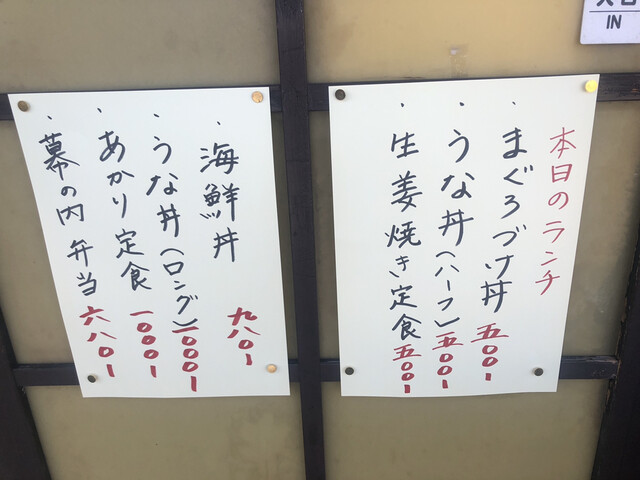 入口
IN
本日のランチ
・まぐろづけ丼 五〇〇-
・うな丼(ハーフ) 五〇〇-
・生姜焼き定食 五〇〇-
・海鮮丼 九八〇-
・うな丼(ロング) 一〇〇〇-
・あかり定食 一〇〇〇-
・幕の内弁当 六八〇-